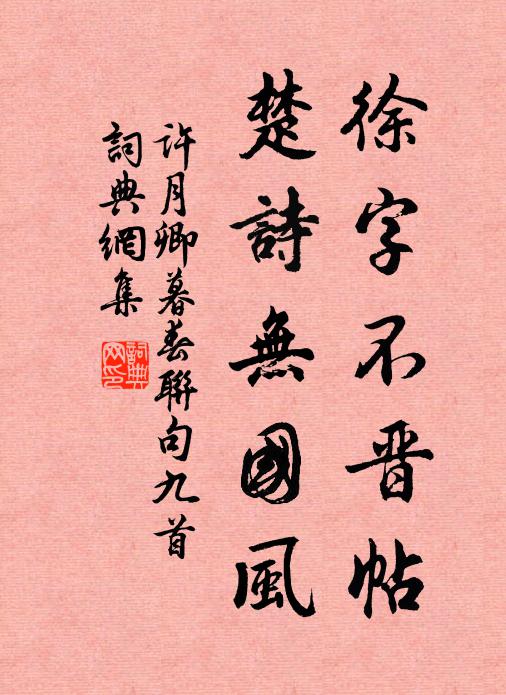 徐字不晋帖
楚詩無國風
許月卿暮春聯句九首
詞典網集
詞典网印